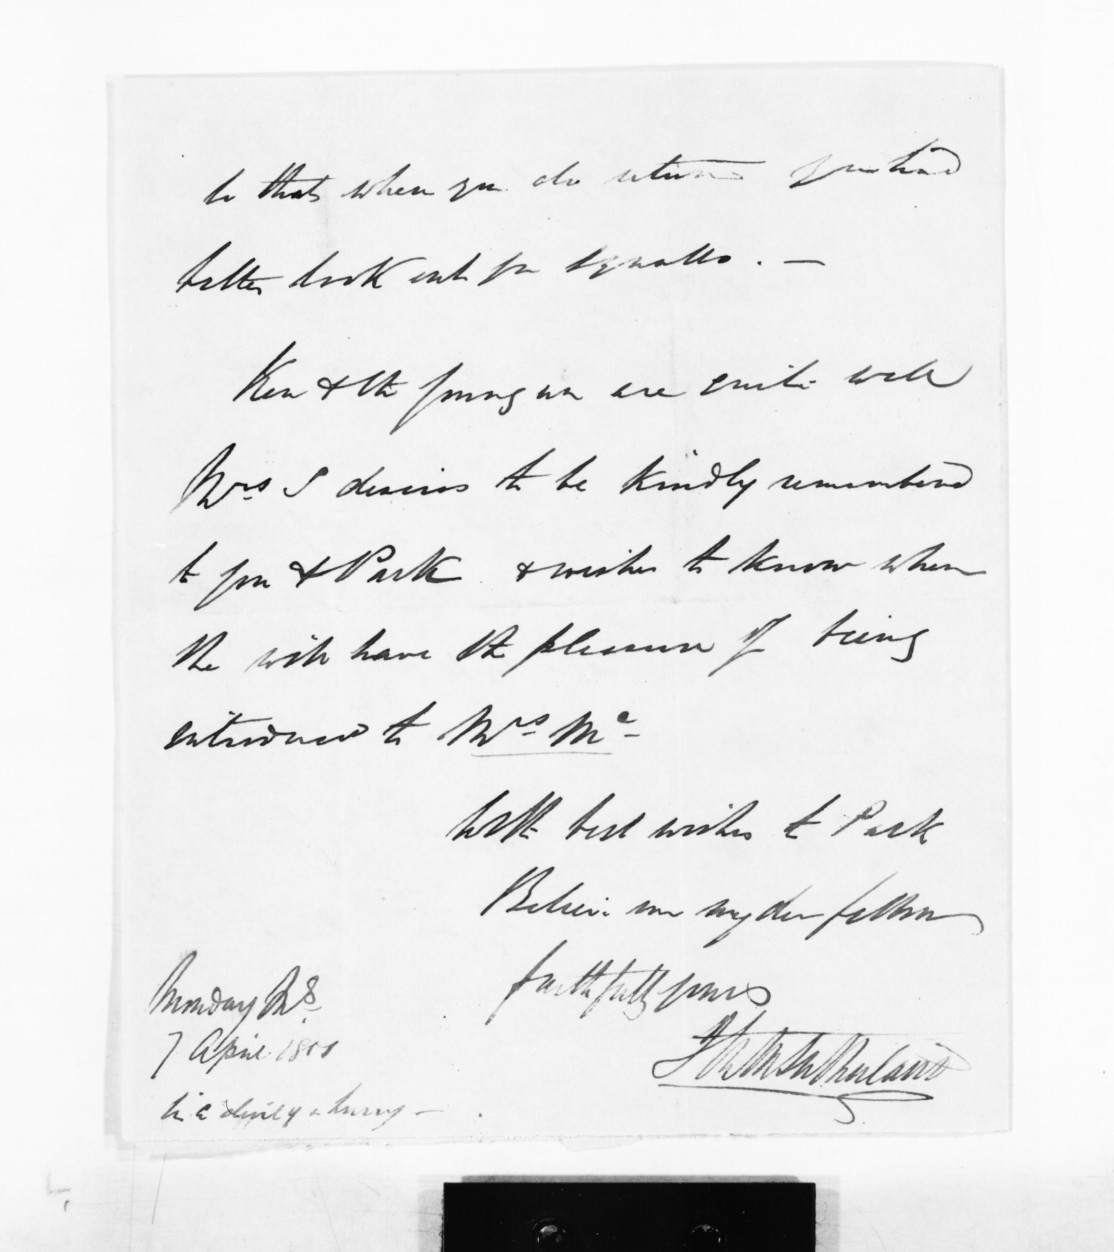 so that when you do return you had
better look out for squalls. —
Ken & the young un are quite well
Mrs S desires to be kindly remembered
to you & Park & wishes to know when
she will have the pleasure of being
introduced to Mrs Mc
With best wishes to Park
Believe me my dear fellow
faithfully yours
Sutherland
Monday
7 April
in a hurry —